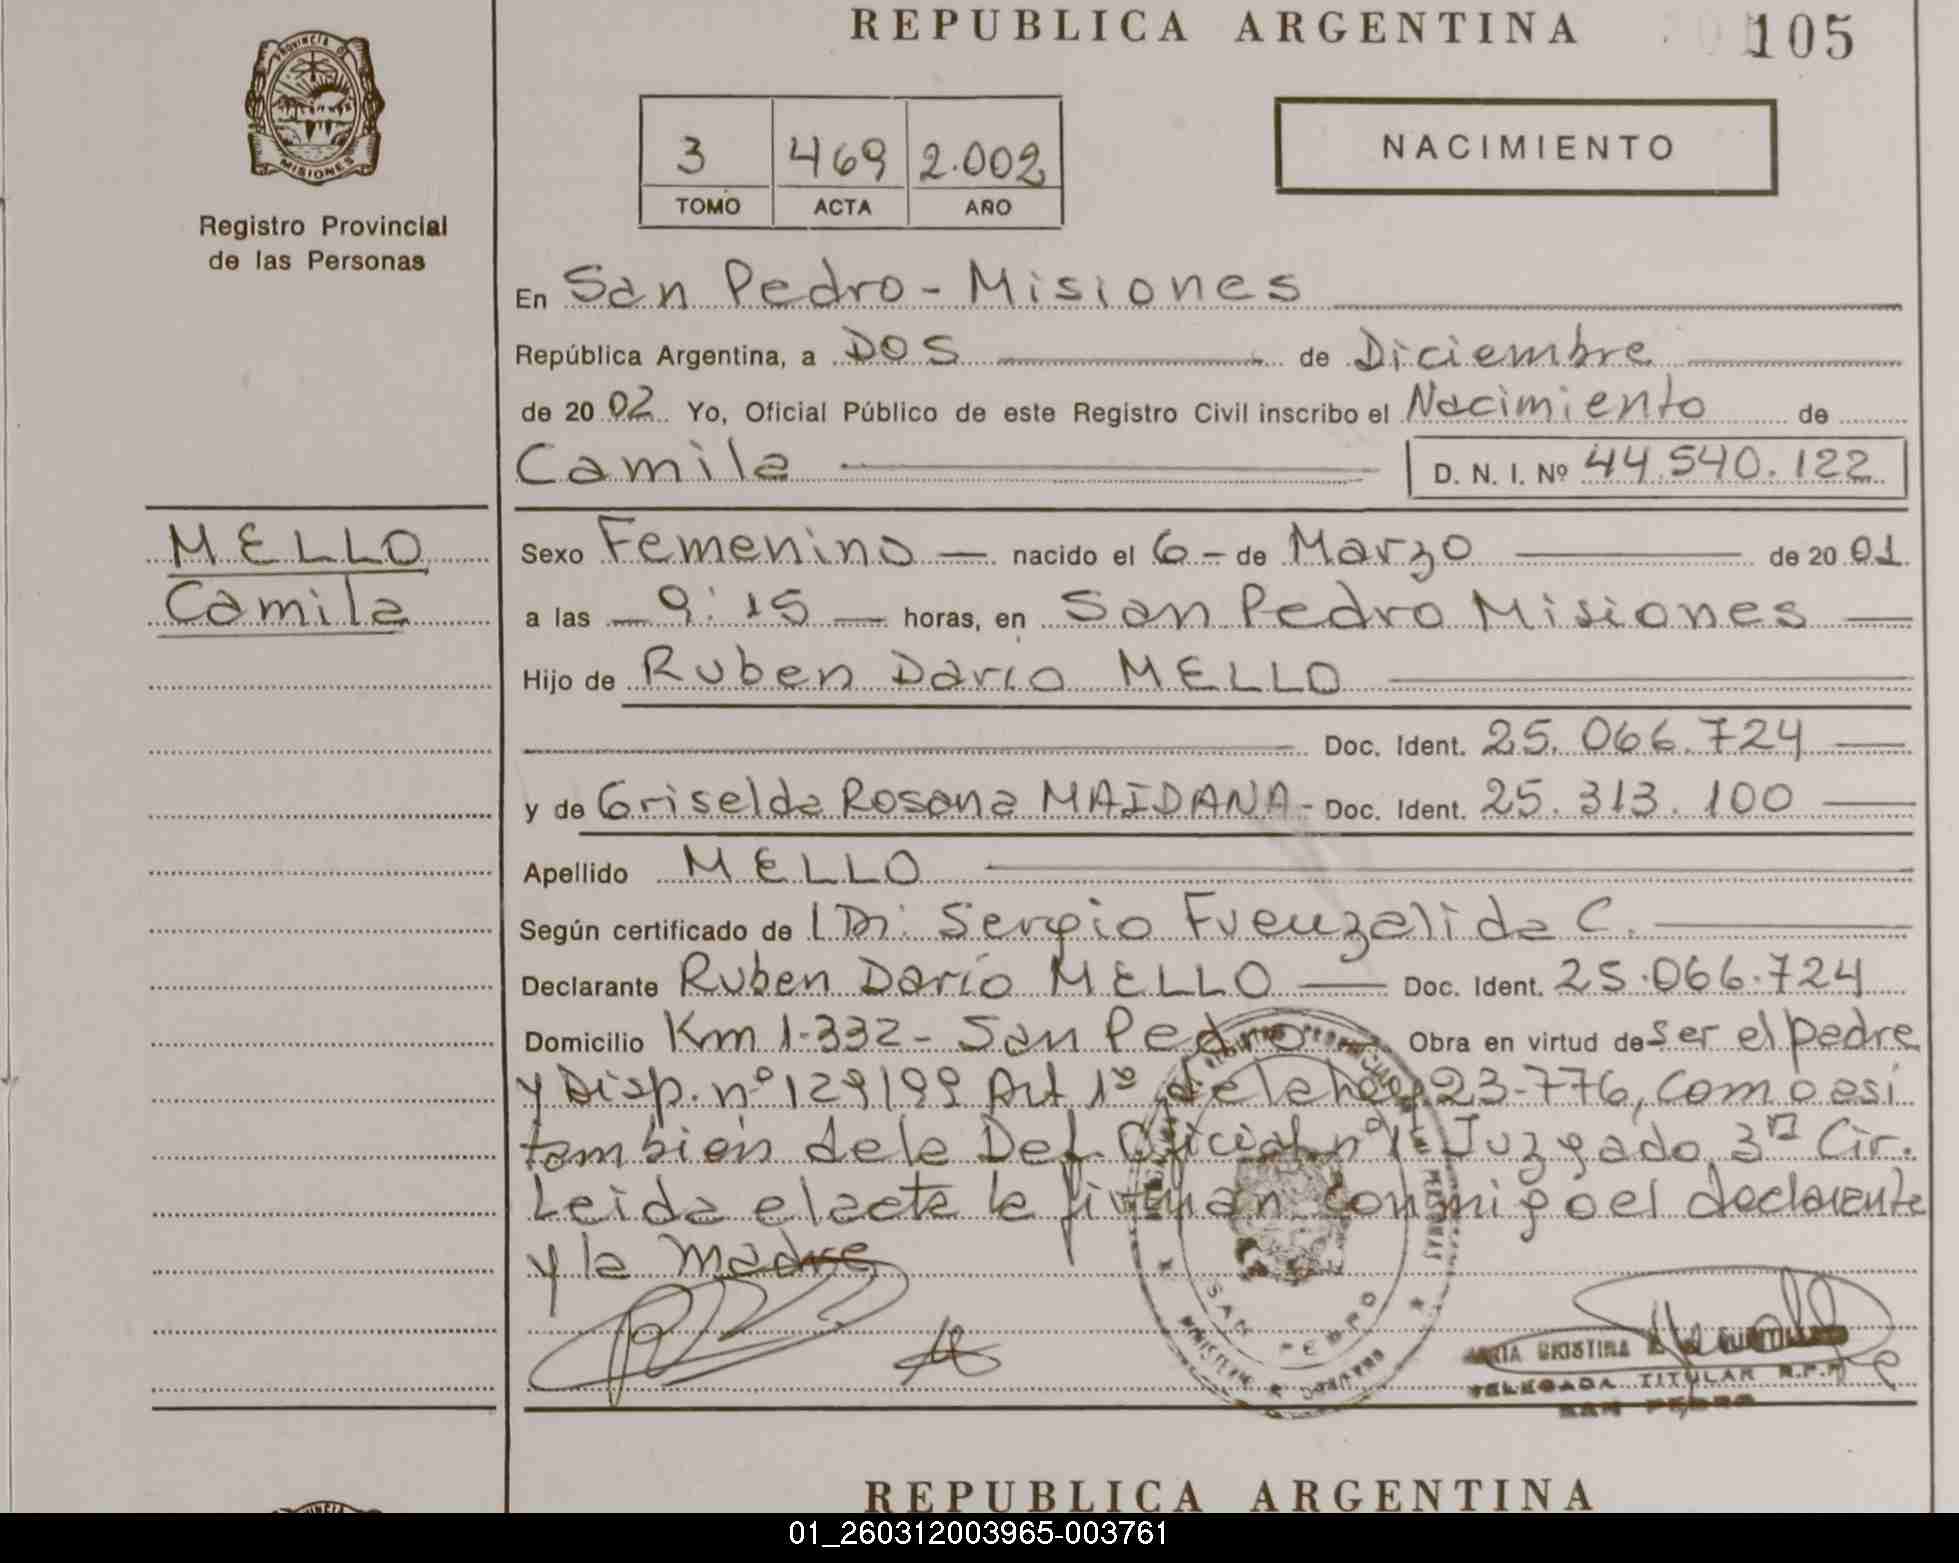 REPUBLICA ARGENTINA
105
PROVINCIA DE
MISIONES
Registro Provincial
de las Personas
3 469 2.002
TOMO ACTA AÑO
NACIMIENTO
En San Pedro - Misiones
República Argentina, a DOS de Diciembre
de 20 02 Yo, Oficial Público de este Registro Civil inscribo el Nacimiento de
Camila D. N. I. Nº 44.540.122
MELLO
Camila
Sexo Femenino — nacido el 6 - de Marzo de 20 01
a las — 9:15 — horas, en San Pedro Misiones —
Hijo de Ruben Dario MELLO
Doc. Ident. 25.066.724 —
y de Griselda Rosana MAIDANA - Doc. Ident. 25.313.100 —
Apellido MELLO
Según certificado de Sergio Fuenzalida C.
Declarante Ruben Darío MELLO — Doc. Ident. 25.066.724
Domicilio Km 1.332 - San Pedro - Obra en virtud de ser el padre
y Disp. nº 129/99 Art 1º de la 23.776, como asi
tambien de la Def. Oficial nº 1 Juzgado 3ª Cir.
Leida el acta la firman conmigo el declarante
y la madre
SAN PEDRO
CRISTINA
DELEGADA TITULAR R.P.P.
SAN PEDRO
REPUBLICA ARGENTINA
01_260312003965-003761